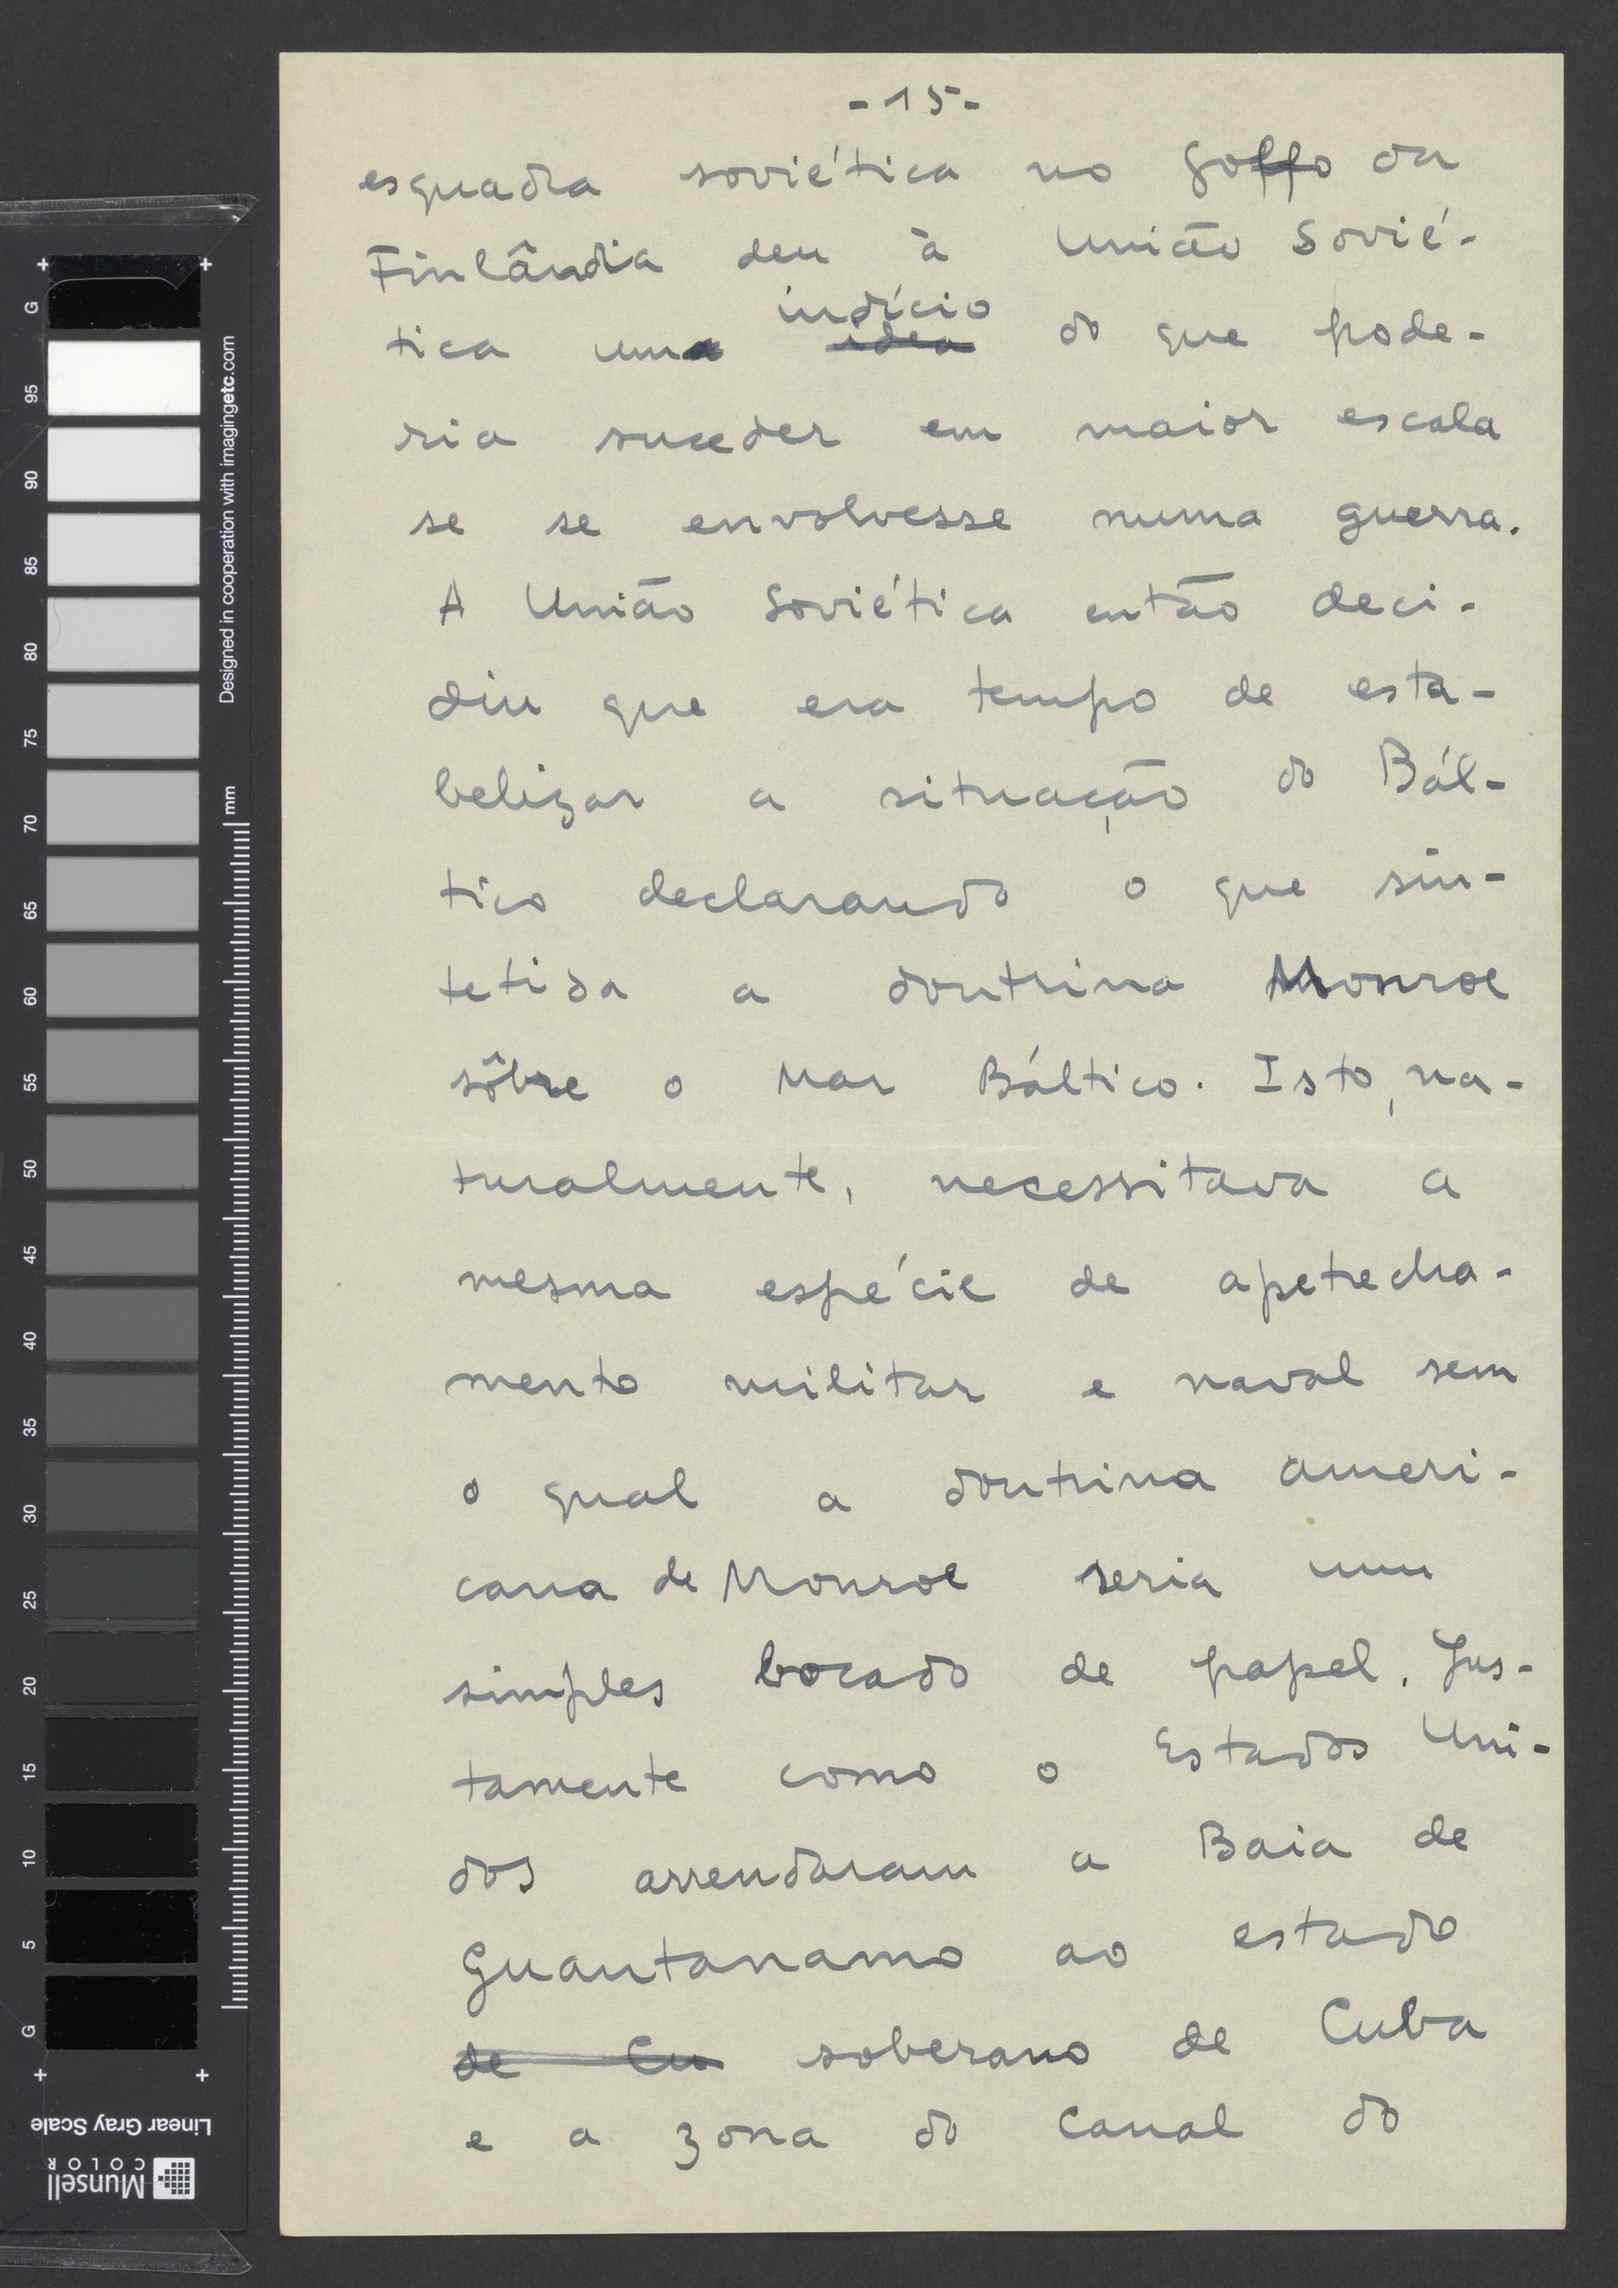 - 15 -
esquadra soviética no golfo da
Finlândia deu à União Sovié-
indício
tica uma idea do que pode-
ria suceder em maior escala
se se envolvesse numa guerra.
A União Soviética então deci-
diu que era tempo de esta-
belizar a situação do Bál-
tico declarando o que sin-
tetisa a doutrina Monroe
sôbre o Mar Báltico. Isto, na-
turalmente, necessitava a
mesma espécie de apetrecha-
mento militar e naval sem
o qual a doutrina ameri-
cana de Monroe seria um
simples bocado de papel. Jus-
tamente como o Estados Uni-
dos arrendaram a Baia de
Guantanamo ao estado
de Cu soberano de Cuba
e a zona do Canal do
G
95
90
85
80
75
70
65
60
55
50
45
40
35
30
25
20
15
10
5
G
Designed in cooperation with imagingetc.com
mm
Linear Gray Scale
Munsell
COLOR